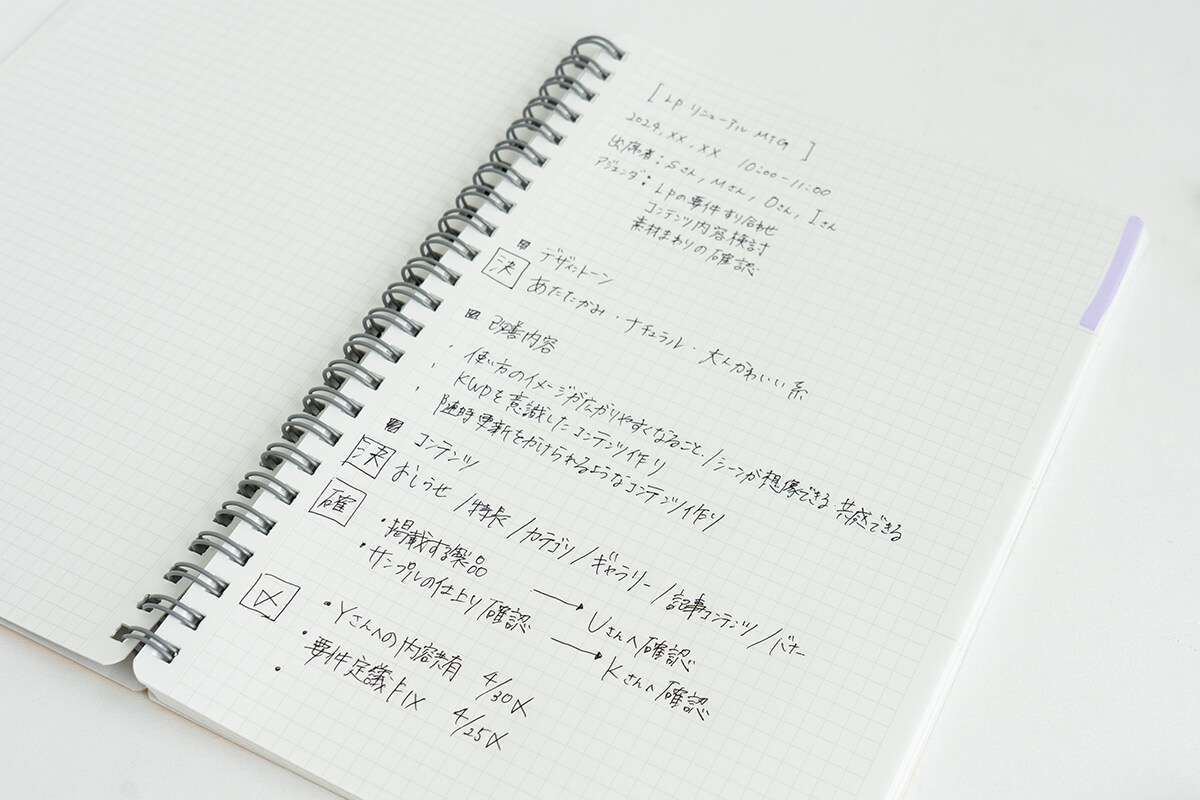 [ LP リニューアル MTG ]
2024.XX.XX 10:00-11:00
出席者：Sさん, Mさん, Oさん, Iさん
アジェンダ：LPの要件すり合わせ
コンテンツ内容検討
素材まわりの確認
デザイントーン
決 あたたかみ・ナチュラル・大人かわいい系
改善内容
・使い方のイメージが広がりやすくなること。/シーンが想像できる 共感できる
・KWDを意識したコンテンツ作り
・随時更新をかけられるようなコンテンツ作り
コンテンツ
決 おしらせ/特長/カテゴリ/ギャラリー/記事コンテンツ/バナー
確 ・掲載する製品 → Uさんへ確認
・サンプルの仕上り確認 → Kさんへ確認
〆 ・Yさんへの内容共有 4/30〆
・要件定義FIX 4/25〆
・